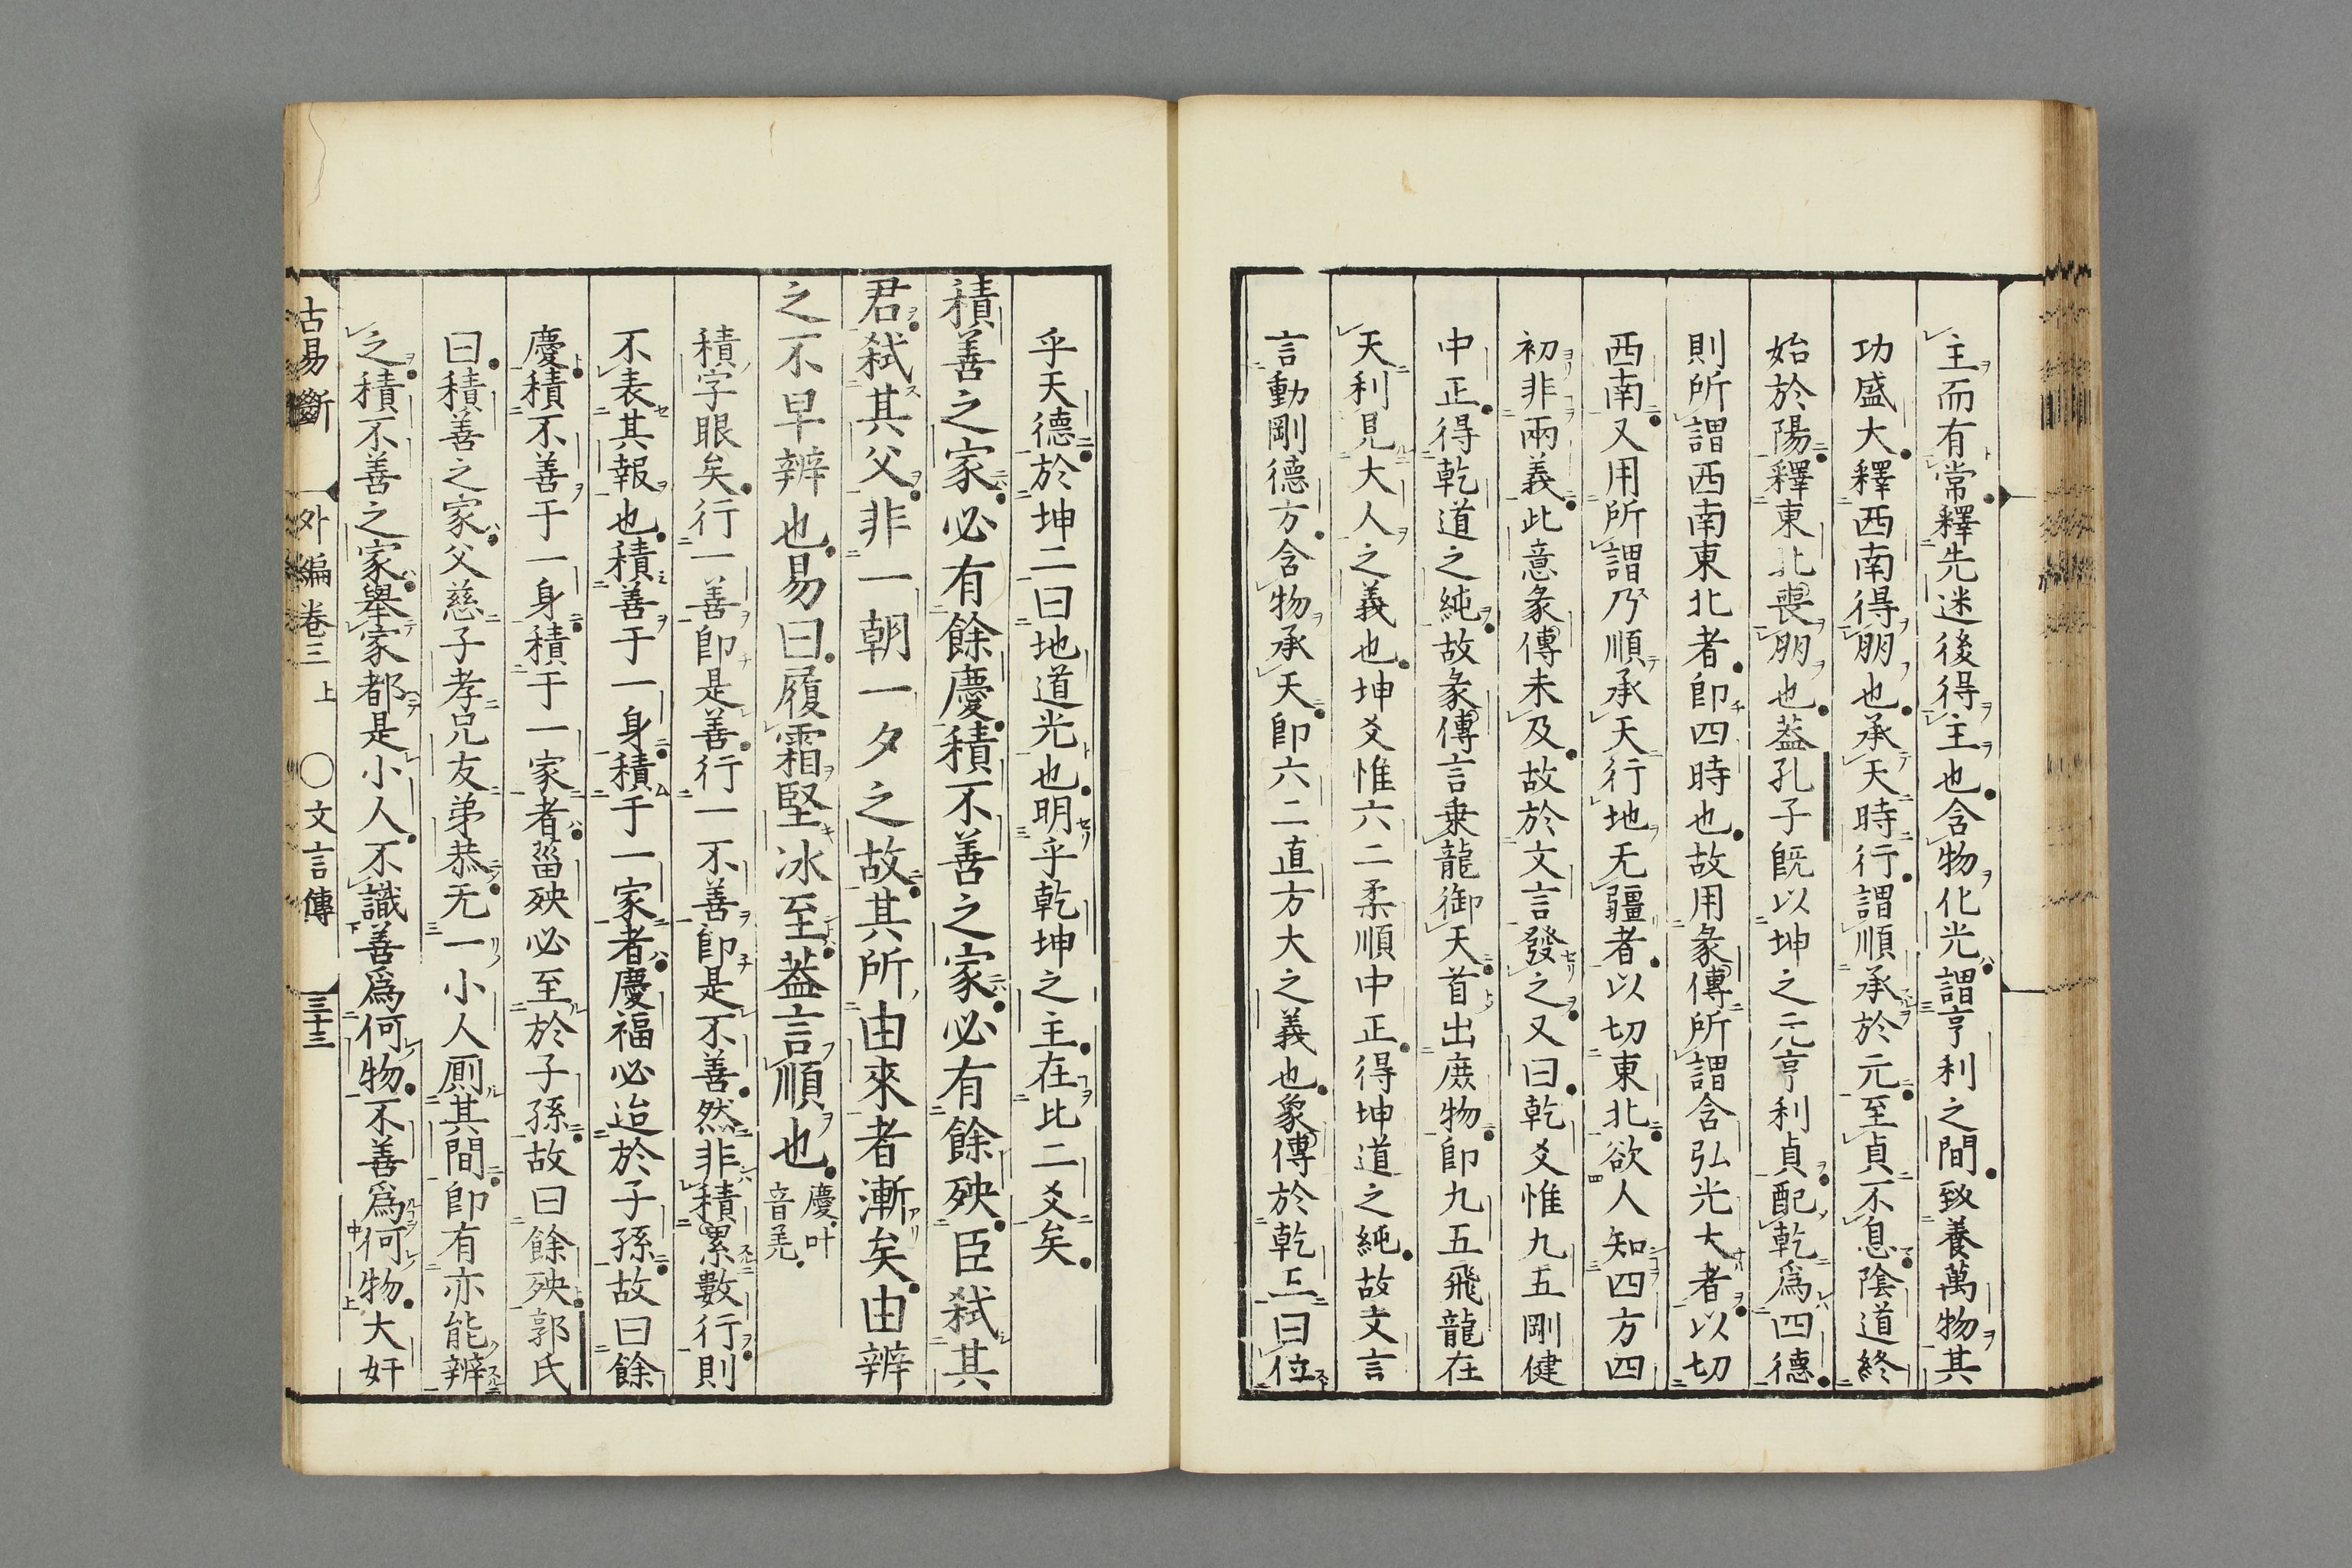 主而有常釋先迷後得主也含物化光謂亨利之間致養萬物其
功盛大釋西南得朋也承天時行謂順承於元至貞不息陰道終
始於陽釋東北喪朋也葢孔子旣以坤之元亨利貞配乾爲四德
則所謂西南東北者卽四時也故用彖傳所謂含弘光大者以切
西南又用所謂乃順承天行地无疆者以切東北欲人知四方四
初非兩義此意彖傳未及故於文言發之又曰乾爻惟九五剛健
中正得乾道之純故彖傳言乗龍御天首出庶物卽九五飛龍在
天利見大人之義也坤爻惟六二柔順中正得坤道之純故文言
言動剛德方含物承天卽六二直方大之義也象傳於乾五曰位
乎天德於坤二曰地道光也明乎乾坤之主在比二爻矣
積善之家必有餘慶積不善之家必有餘殃臣弑其
君弑其父非一朝一夕之故其所由來者漸矣由辨
之不早辨也易曰履霜堅冰至葢言順也慶叶音羌
積字眼矣行一善卽是善行一不善卽是不善然非積累數行則
不表其報也積善于一身積于一家者慶福必迨於子孫故曰餘
慶積不善于一身積于一家者菑殃必至於子孫故曰餘殃郭氏
曰積善之家父慈子孝兄友弟恭无一小人厠其間卽有亦能辨
之積不善之家舉家都是小人不識善爲何物不善爲何物大奸
古易斷 外編卷三上 ○文言傳 三十三